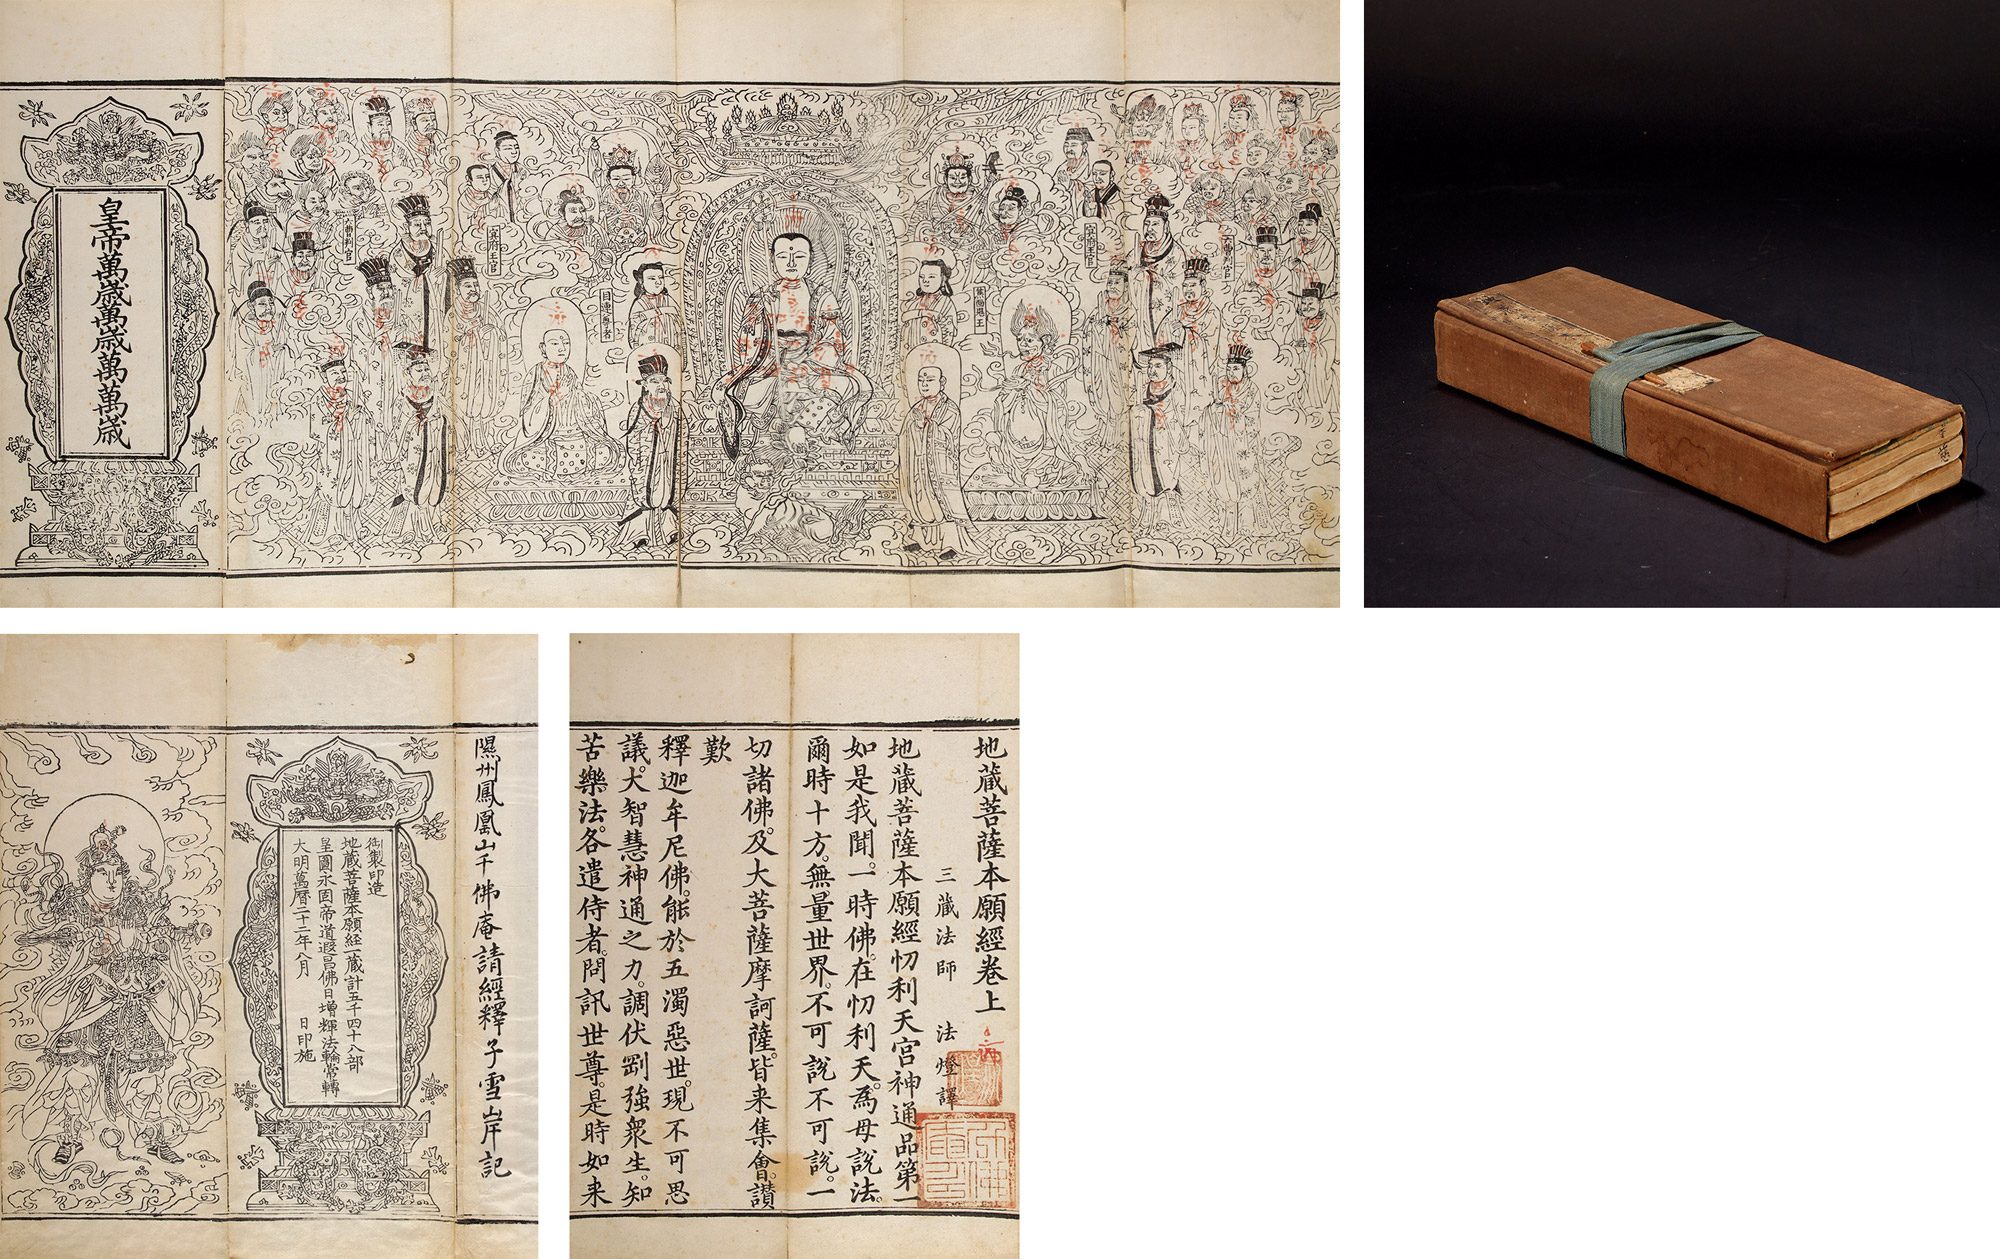 皇帝萬歲萬歲萬萬歲
六曹判官
冥府王官
目連尊者
冥府王官
六曹判官
隰州鳳凰山千佛庵請經釋子雪岸記
御製印造
地藏菩薩本願經一藏計五千四十八部
皇圖永固帝道遐昌佛日增輝法輪常轉
大明萬曆二十二年八月 日印施
地藏菩薩本願經卷上
三藏法師 法燈譯
地藏菩薩本願經忉利天宮神通品第一
如是我聞。一時佛。在忉利天。為母說法。
爾時十方。無量世界。不可說不可說。一
切諸佛。及大菩薩摩訶薩。皆來集會。讚
歎
釋迦牟尼佛。能於五濁惡世。現不可思
議。大智慧神通之力。調伏剛強眾生。知
苦樂法。各遣侍者。問訊世尊。是時如來